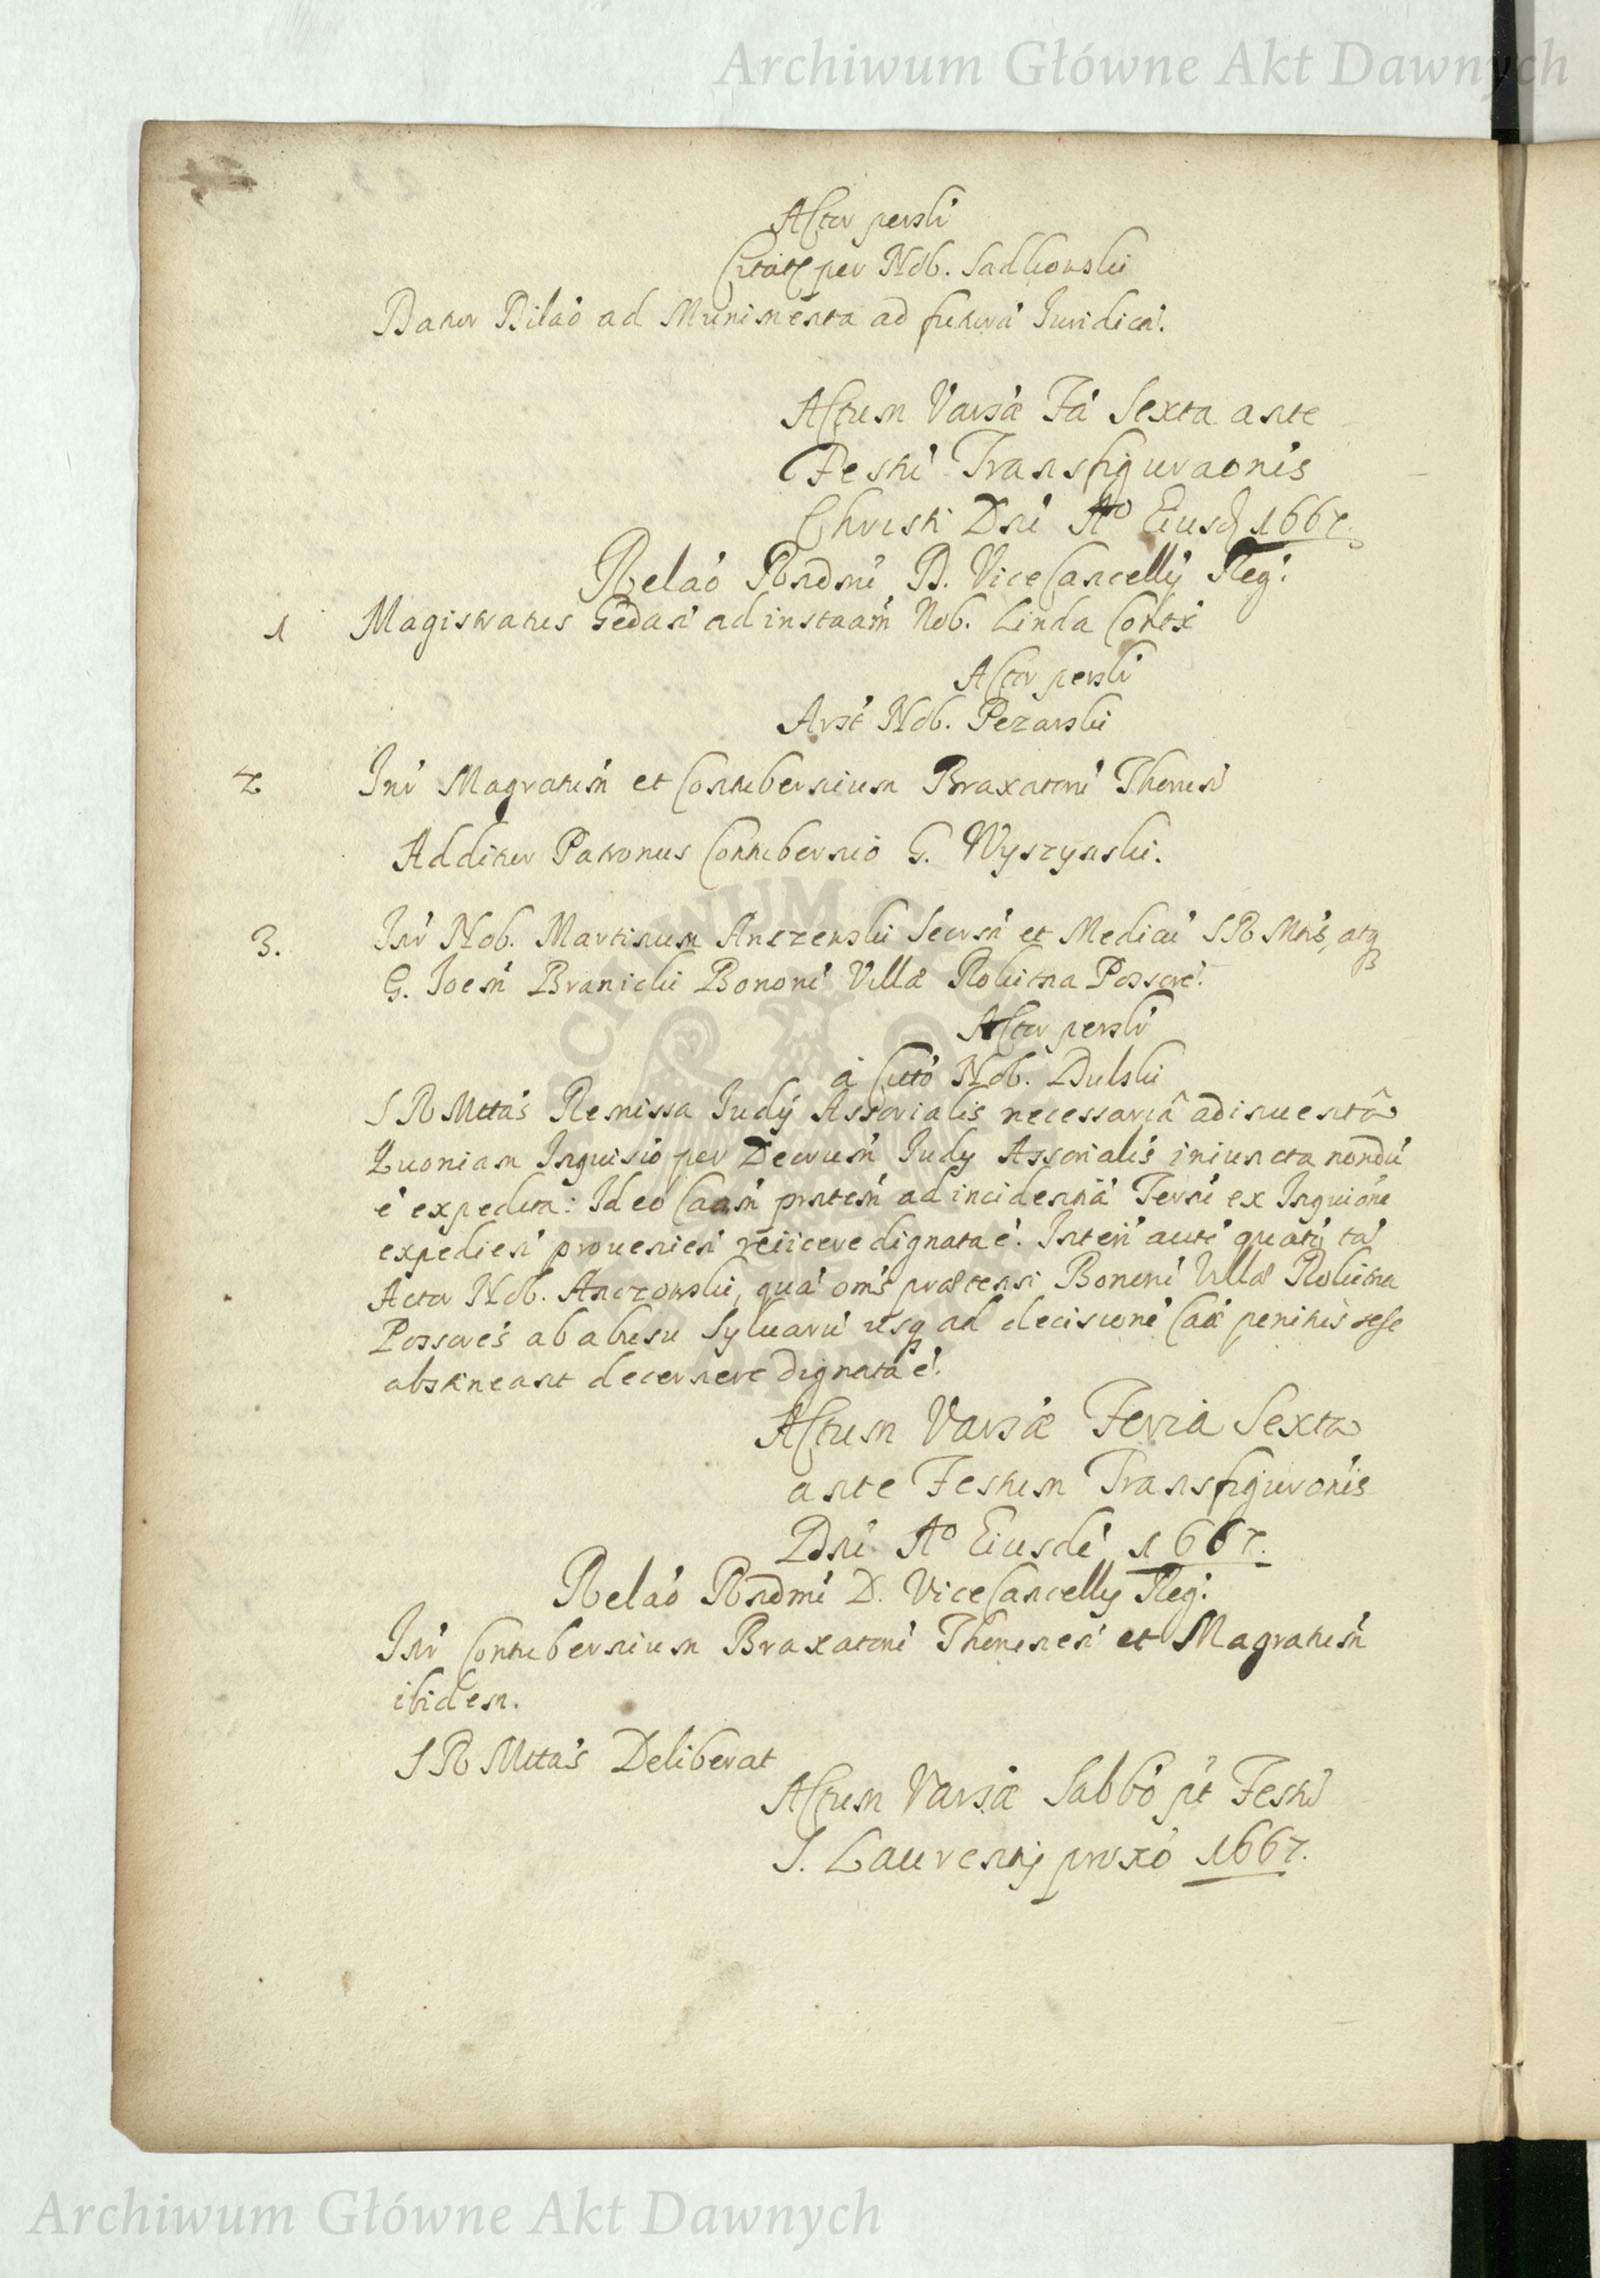 Archiwum Główne Akt Dawnych
Actor perslr
Citats per Nob. Sadkowski
Datur Dilao ad Munimenta ad futura Iuridica.
Actum Varsae Fa Sexta ante
Festu Transfiguraonis
Christi Dni Ao Eiusd 1667.
Relao Rndmi D. ViceCancellij Reg.
1 Magistratus Gedan ad instaam Nob. Linda Contx
Actor perslr
Arst Nob. Pezarski
2 Inr Magratum et Contubernium Braxatoru Thorun
Additur Patronus Contubernio G. Wyszynski.
3. Inr Nob. Martinum Anczewski Secrm et Medicu S R Mtis, atq
G. Joem Branicki Bonoru Villae Rokitna Possore.
Actor perslr
a Citto Nob. Dulski
S R Mttas Remissa Iudij Assorialis necessaria adinuenta
Quoniam Inquisio per Decrum Iudy Assorialis iniuncta nondu
e expedita: Ideo Caam prntem ad incidentia Termi ex Inquione
expedien prouenien reiicere dignata e. Interi aute quatu ta
Actor Nob. Anczowski, qua oms praetensi Bonoru Villae Rokitna
Possores ab abusu Syluaru usq ad decisione Caae penitus sese
abstineant decernere dignata e.
Actum Varsae Feria Sexta
ante Festum Transfiguronis
Dni Ao Eiusde 1667.
Relao Rndmi D. ViceCancelly Reg.
Inr Contubernium Braxatoru Thorunen et Magratum
ibidem.
S R Mttas Deliberat
Actum Varsae Sabbo pt Festu
S. Laurentij proxo 1667.
Archiwum Główne Akt Dawnych